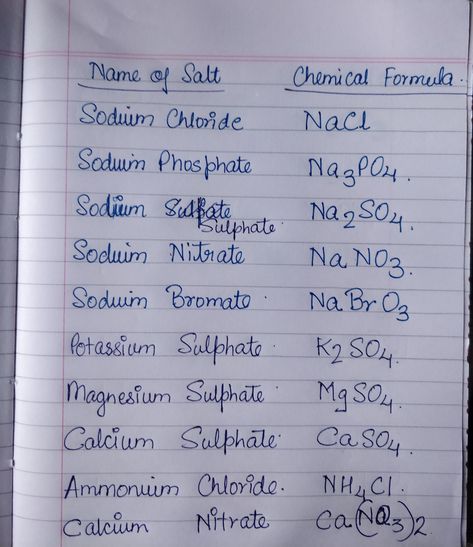 Name of Salt Chemical Formula.
Sodium Chloride NaCl
Sodium Phosphate Na3PO4.
Sodium Sulfate Na2SO4.
Sulphate.
Sodium Nitrate NaNO3.
Sodium Bromate. NaBrO3
Potassium Sulphate. K2SO4.
Magnesium Sulphate. MgSO4.
Calcium Sulphate. CaSO4.
Ammonium Chloride. NH4Cl.
Calcium Nitrate Ca(NO3)2